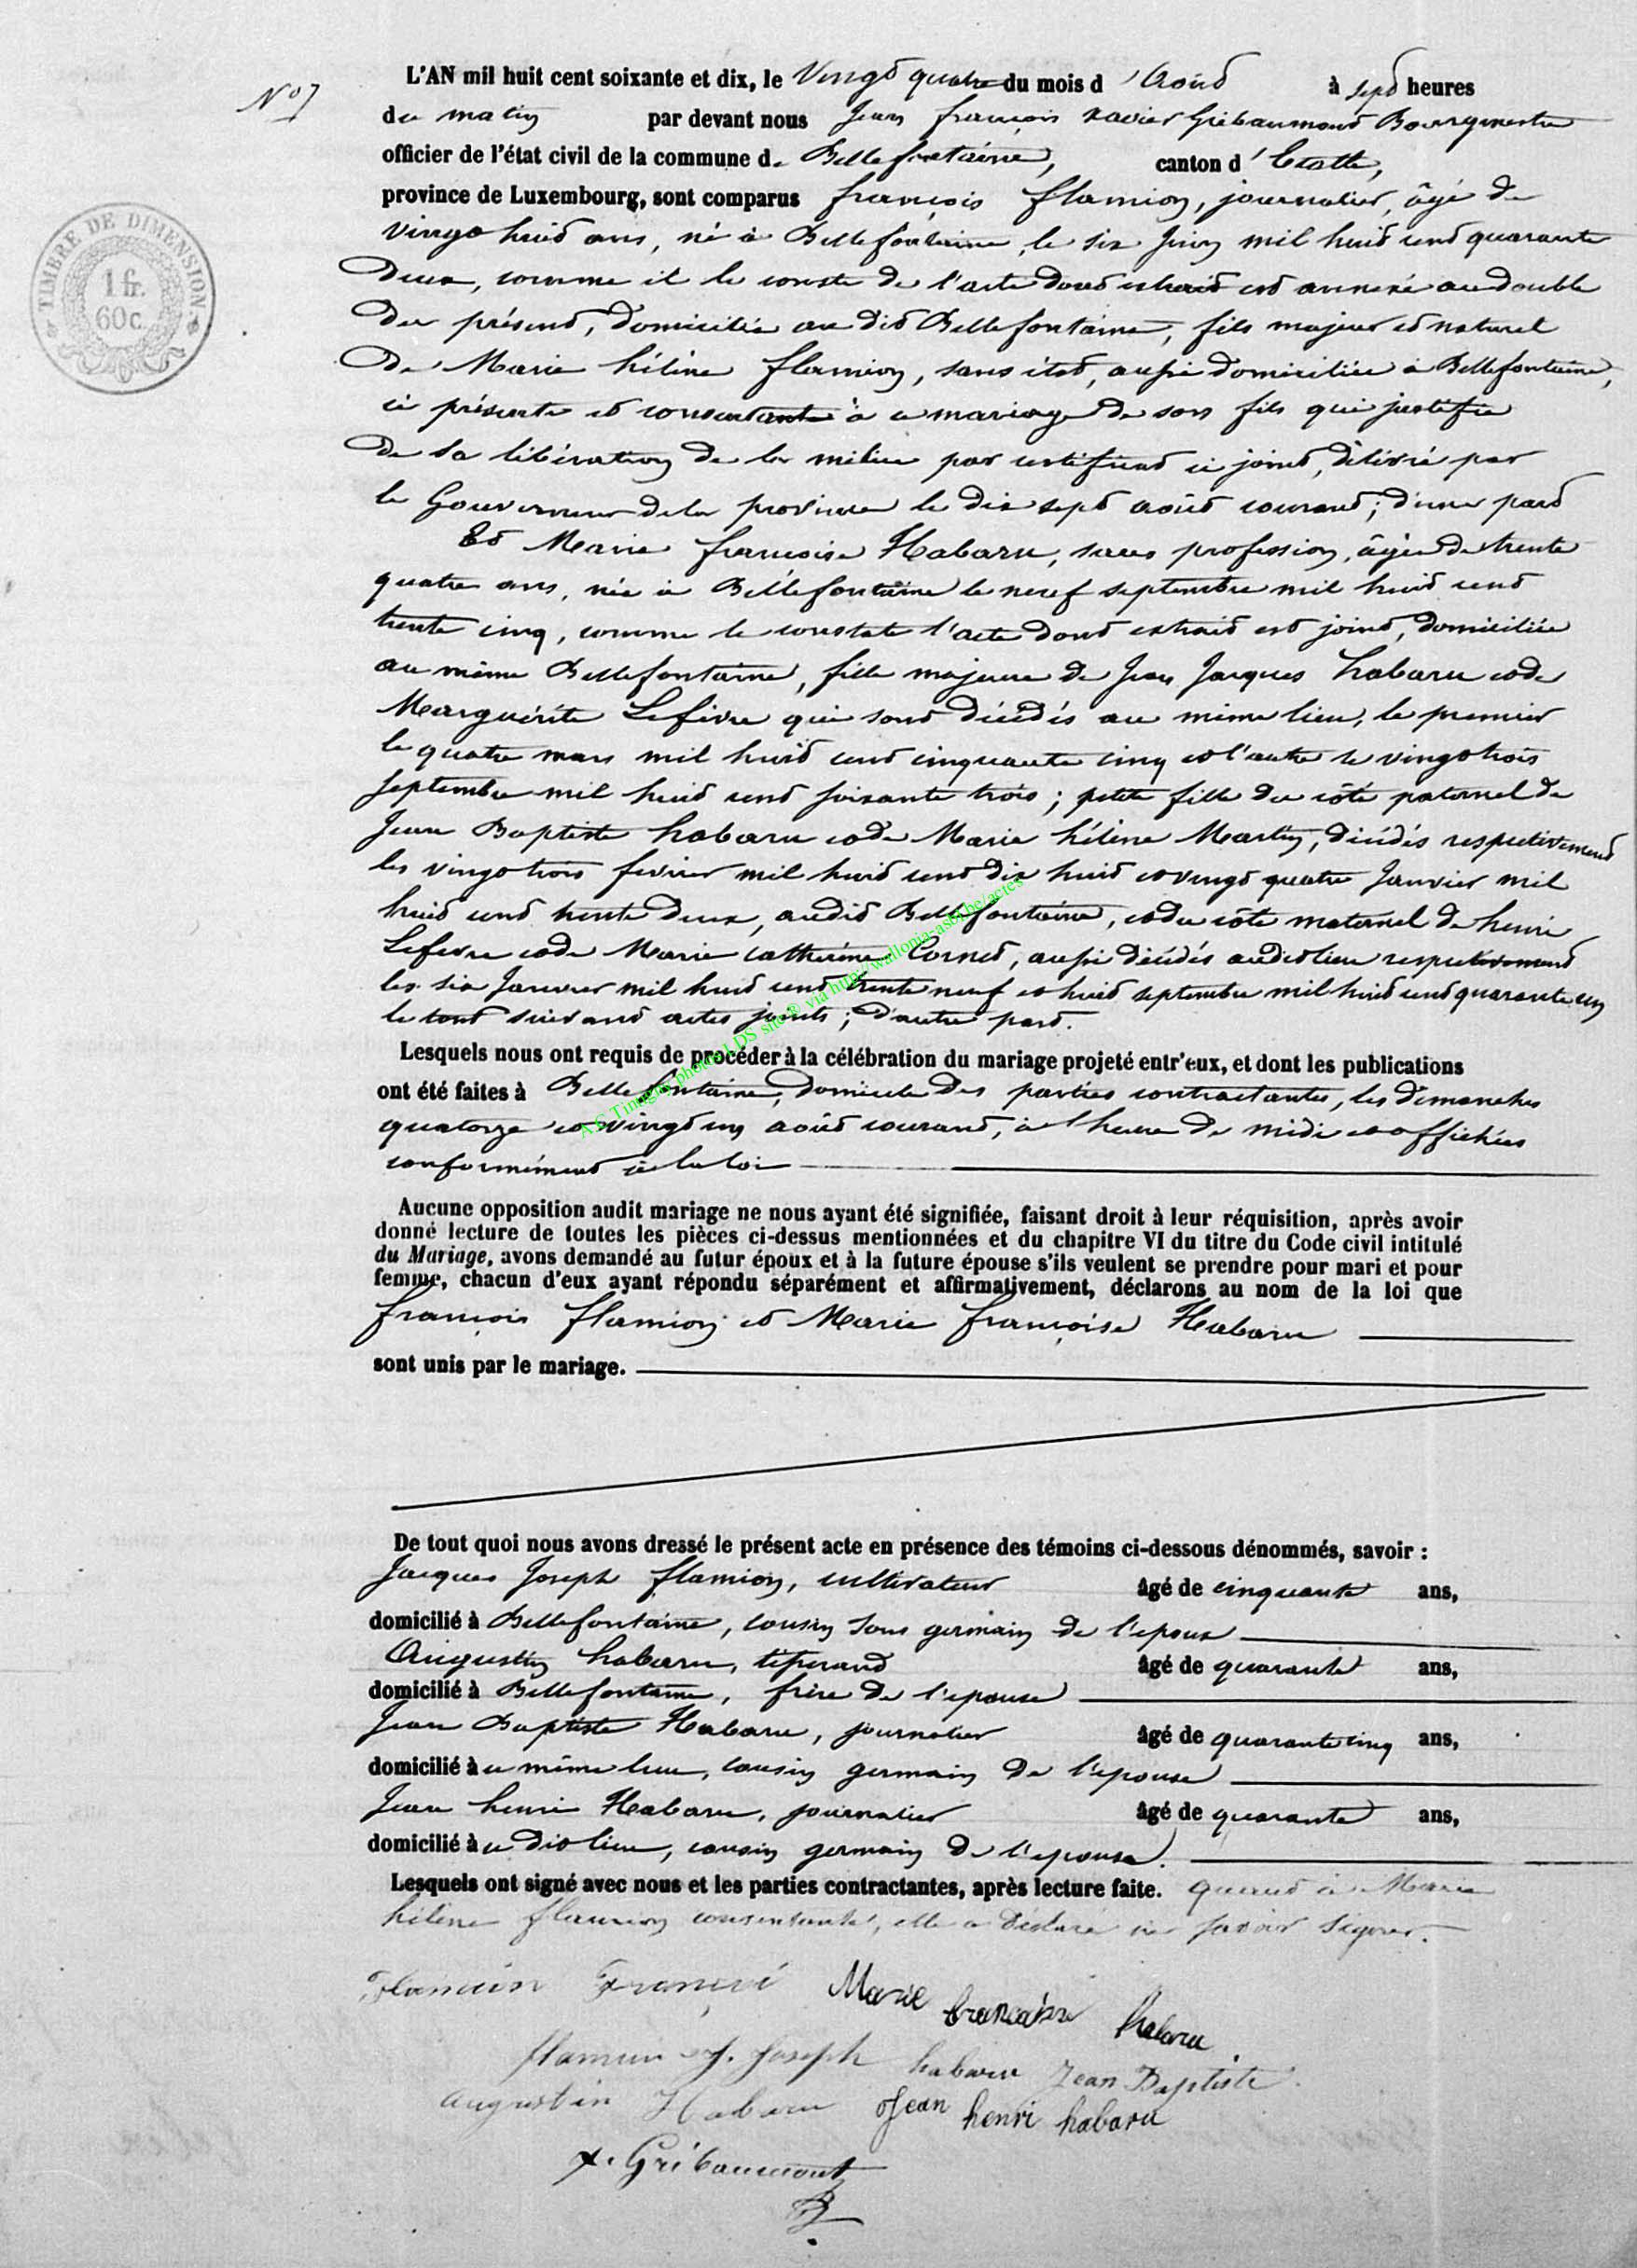 N° 7
L'AN mil huit cent soixante et dix, le Vingt quatre du mois d'Août à sept heures
du matin par devant nous Jean françois xavier Gribaumont Bourgmestre
officier de l'état civil de la commune de Bellefontaine, canton d'Etalle,
province de Luxembourg, sont comparus françois flamion, journalier, âgé de
vingt huit ans, né à Bellefontaine, le six Juin mil huit cent quarante
deux, comme il le conste de l'acte dont extrait est annexé au double
du présent, domicilié au dit Bellefontaine, fils majeur et naturel
de Marie héléne flamion, sans état, aussi domiciliée à Bellefontaine,
ci présente et consentante à ce mariage de son fils qui justifie
de sa libération de la milice par certificat ci joint, délivré par
le Gouverneur de la province le dix sept août courant; d'une part
Et Marie françoise Habaru, sans profession, âgée de trente
quatre ans, née à Bellefontaine le neuf septembre mil huit cent
trente cinq, comme le constate l'acte dont extrait est joint, domiciliée
au même Bellefontaine, fille majeure de Jean Jacques habaru et de
Marguérite Lefèvre qui sont décédés au même lieu, le premier
le quatre mars mil huit cent cinquante cinq et l'autre le vingt trois
septembre mil huit cent soixante trois; petite fille du côté paternel de
Jean Baptiste habaru et de Marie héléne Martin, décédés respectivement
les vingt trois fevrier mil huit cent dix huit et vingt quatre Janvier mil
huit cent trente deux, au dit Bellefontaine, et du côté maternel de henri
Lefevre et de Marie catherine Cornet, aussi décédés au dit lieu respectivement
les six Janvier mil huit cent trente neuf et huit septembre mil huit cent quarante un
le tout suivant actes joints; d'autre part.
Lesquels nous ont requis de procéder à la célébration du mariage projeté entr'eux, et dont les publications
ont été faites à Bellefontaine, domicile des parties contractantes, les dimanches
quatorze et vingt un août courant, à l'heure de midi et affichées
conformément à la loi
Aucune opposition audit mariage ne nous ayant été signifiée, faisant droit à leur réquisition, après avoir
donné lecture de toutes les pièces ci-dessus mentionnées et du chapitre VI du titre du Code civil intitulé
du Mariage, avons demandé au futur époux et à la future épouse s'ils veulent se prendre pour mari et pour
femme, chacun d'eux ayant répondu séparément et affirmativement, déclarons au nom de la loi que
françois flamion et Marie françoise Habaru
sont unis par le mariage.
De tout quoi nous avons dressé le présent acte en présence des témoins ci-dessous dénommés, savoir :
Jacques Joseph flamion, cultivateur âgé de cinquante ans,
domicilié à Bellefontaine, cousin sous germain de l'epoux
Augustin habaru, tisserand âgé de quarante ans,
domicilié à Bellefontaine, frère de l'epouse
Jean Baptiste Habaru, journalier âgé de quarante cinq ans,
domicilié à ce même lieu, cousin germain de l'épouse
Jean henri Habaru, journalier âgé de quarante ans,
domicilié à ce dit lieu, cousin germain de l'epouse.
Lesquels ont signé avec nous et les parties contractantes, après lecture faite. quant à Marie
héléne flamion consentante, elle a déclaré ne savoir signer.
Marie francaise habaru
flamion J. Joseph habaru Jean Baptiste
augustin Habaru Jean henri habaru
x. Gribaumont
TIMBRE DE DIMENSION
1 fr.
60c.
A.G Tintigny photos LDS site ® via http://wallonia-asbl.be/actes